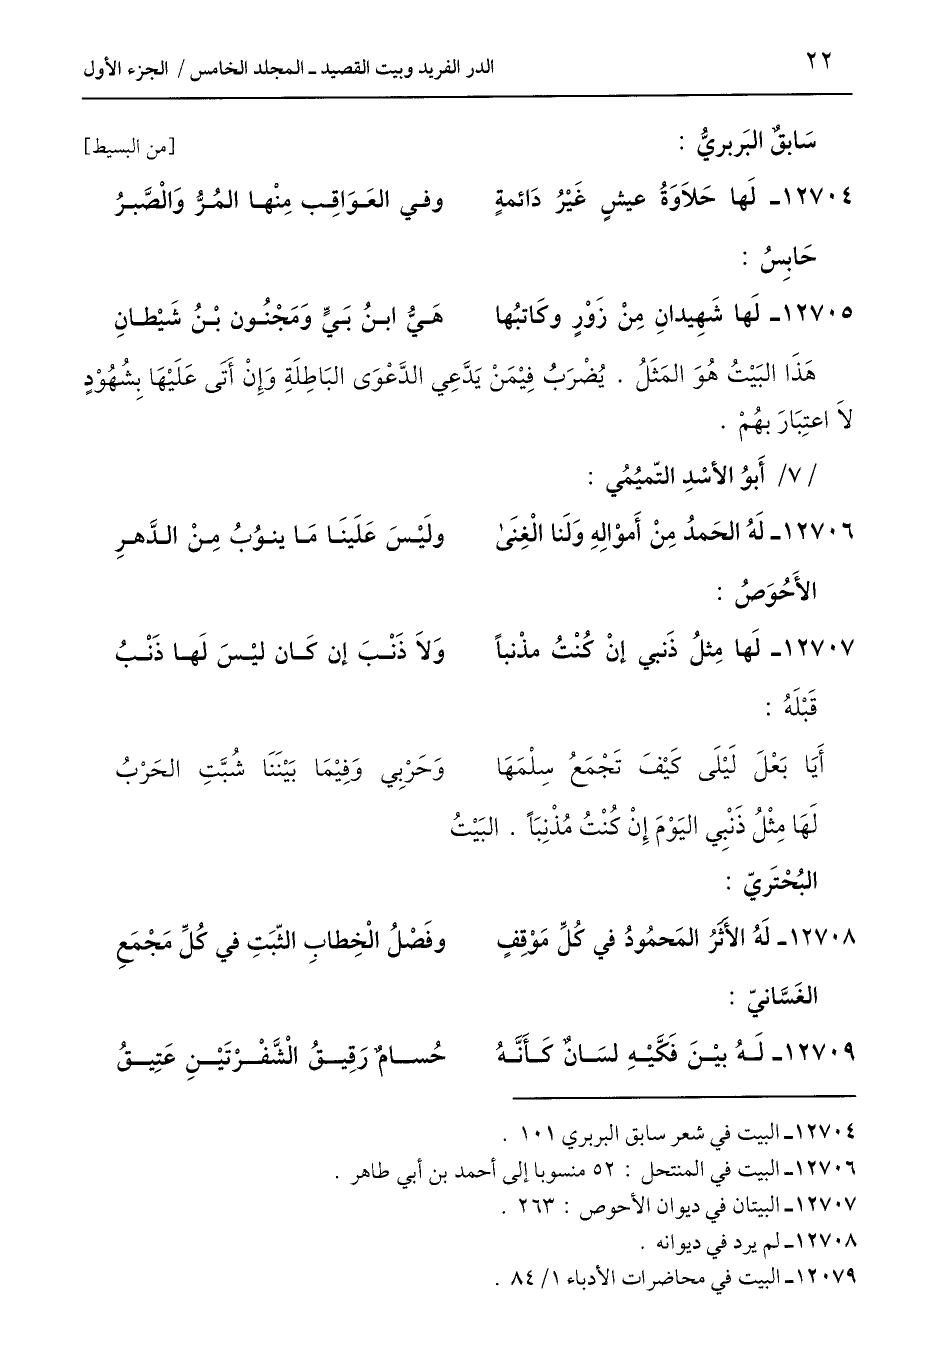 ٢٢ الدر الفريد وبيت القصيد ـ المجلد الخامس / الجزء الأول
سَابقٌ البَربريُّ : [من البسيط]
١٢٧٠٤ـ لَها حَلاَوَةُ عيشٍ غَيْرُ دَائمةٍ وفي العَوَاقِبِ مِنْها المُرُّ وَالْصَّبرُ
حَابِسُ :
١٢٧٠٥ـ لَها شَهِيدانِ مِنْ زَوْرٍ وكَاتبُها هَيُّ ابنُ بَيٍّ وَمَجْنُون بْنُ شَيْطانِ
هَذَا البَيْتُ هُوَ المَثَلُ . يُضْرَبُ فِيْمَنْ يَدَّعِي الدَّعْوَى البَاطِلَةِ وَإِنْ أَتَى عَلَيْهَا بِشُهُوْدٍ
لاَ اعتِبَارَ بهُمْ .
/ ٧/ أَبوُ الأسْدِ التّميْمُي :
١٢٧٠٦ـ لَهُ الحَمدُ مِنْ أَموْالِهِ وَلَنا الْغِنَىٰ ولَيْسَ عَلَينَا مَا ينوُبُ مِنْ الدَّهرِ
الأَحُوَصُ :
١٢٧٠٧ـ لَها مِثلُ ذَنبي إنْ كُنْتُ مذْنباً وَلاَ ذَنْبَ إن كَان ليْسَ لَها ذَنْبُ
قَبْلَهُ :
أَيَا بَعْلَ لَيْلَى كَيْفَ تَجْمَعُ سِلْمَهَا وَحَرْبِي وَفِيْمَا بَيْنَنَا شُبَّتِ الحَرْبُ
لَهَا مِثْلُ ذَنْبِي اليَوْمَ إِنْ كُنْتُ مُذْنِبَاً . البَيْتُ
البُحْتَريّ :
١٢٧٠٨ـ لَهُ الأَثَرُ المَحمُودُ في كُلِّ مَوْقِفٍ وفَصْلُ الْخِطابِ الثّبَتِ في كُلِّ مَجْمَعِ
الغَسَّانيّ :
١٢٧٠٩ـ لَهُ بيْنَ فَكَّيْهِ لسَانٌ كَأَنَّهُ حُسامٌ رَقِيقُ الْشَّفْرتَيْنِ عَتِيقُ
١٢٧٠٤ـ البيت في شعر سابق البربري ١٠١ .
١٢٧٠٦ـ البيت في المنتحل : ٥٢ منسوبا إلى أحمد بن أبي طاهر .
١٢٧٠٧ـ البيتان في ديوان الأحوص : ٢٦٣ .
١٢٧٠٨ـ لم يرد في ديوانه .
١٢٠٧٩ـ البيت في محاضرات الأدباء ١/ ٨٤ .